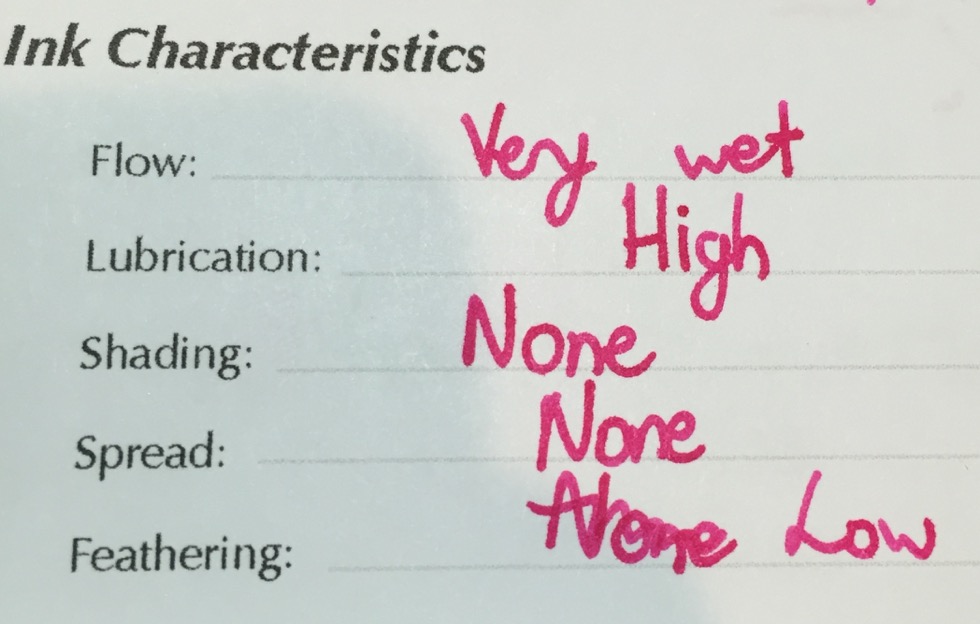 Ink Characteristics
Flow: Very wet
Lubrication: High
Shading: None
Spread: None
Feathering: Low